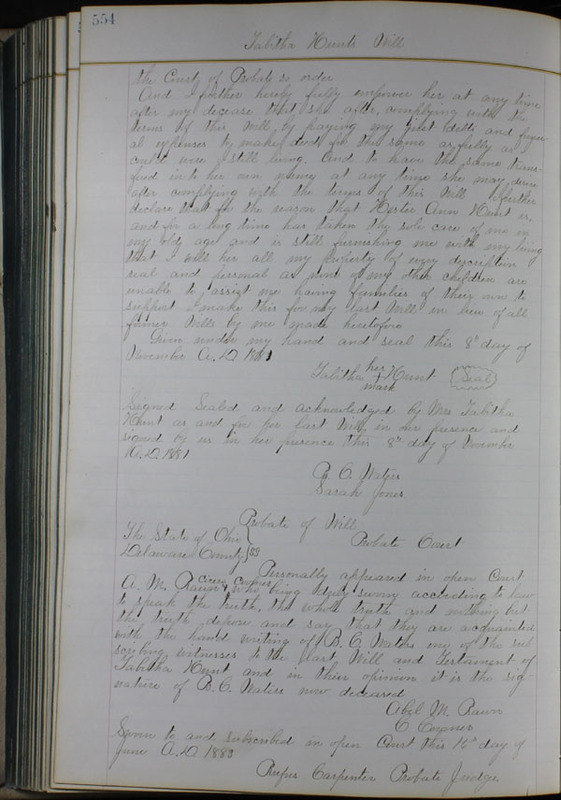 554
Tabitha Hunts Will
the Court of Probate so order
And I further hereby fully empower her at any time
after my decease that she after complying with the
terms of this Will by paying my just debts and funer
al expenses to make deed for the same as fully as I
could were I still living. And to have the same trans-
fired into her own name at any time she may desire
after complying with the terms of this Will I further
declare that for the reason that Hester Ann Hunt is
and for a long time has taken the sole care of me in
my old age and is still furnishing me with my living
that I will her all my property of every description
real and personal as none of my other children are
unable to assist me having families of their own to
support I make this for my last Will in lieu of all
former Wills by me made heretofore
Given under my hand and seal this 8th day of
November A.D. 1881
Tabitha her mark Hunt (Seal)
Signed Sealed and acknowledged by Mrs Tabitha
Hunt as and for her last Will in her presence and
signed by us in her presence this 8th day of November
A.D. 1881
B. C. Waters
Sarah Jones
Probate of Will
The State of Ohio
Delaware County } SS Probate Court
Personally appeared in open Court
A. M. Rawn & who being duly sworn according to law
to speak the truth, the whole truth and nothing but
the truth depose and say that they are acquainted
with the hand writing of B. C. Waters one of the sub
scribing witnesses to the last Will and Testament of
Tabitha Hunt and in their opinion it is the sig-
nature of B. C. Waters now deceased
Abel M. Rawn
C
Sworn to and subscribed in open Court this 16th day of
June A.D. 1883
Rufus Carpenter Probate Judge